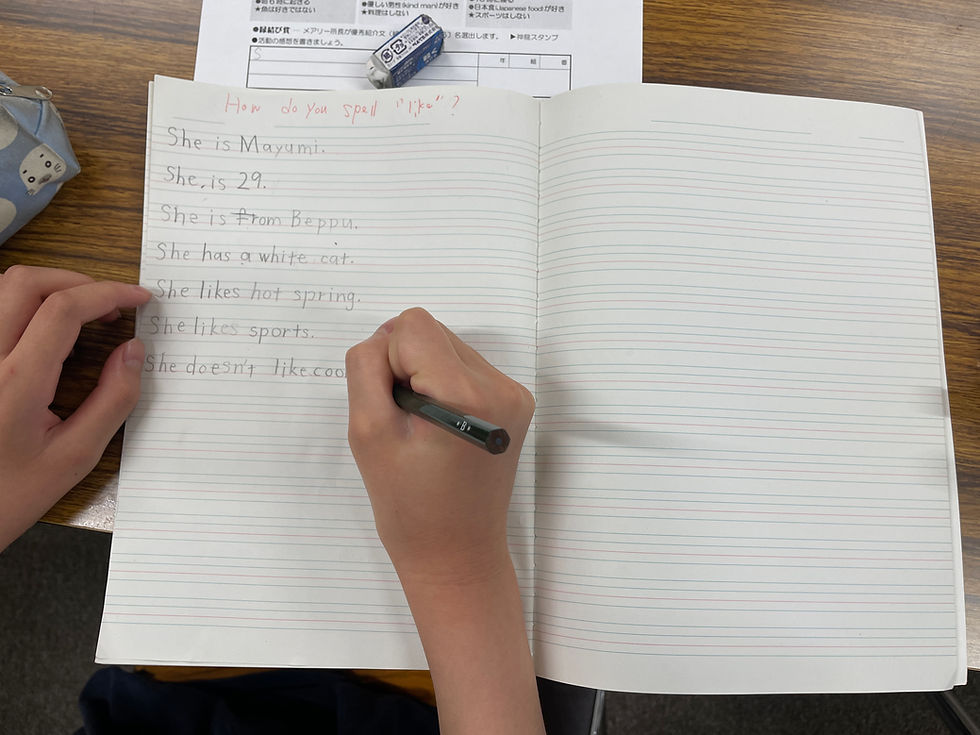 ★魚は好きではない
●優しい男性(kind man)が好き
★料理はしない
●日本食(Japanese food)が好き
★スポーツはしない
●縁結び賞 ― メアリー所長が優秀紹介文 名選出します。 ▶神龍スタンプ
●活動の感想を書きましょう。
年 組 番
S
How do you spell "like"?
She is Mayumi.
She is 29.
She is from Beppu.
She has a white cat.
She likes hot spring.
She likes sports.
She doesn't like coo
B